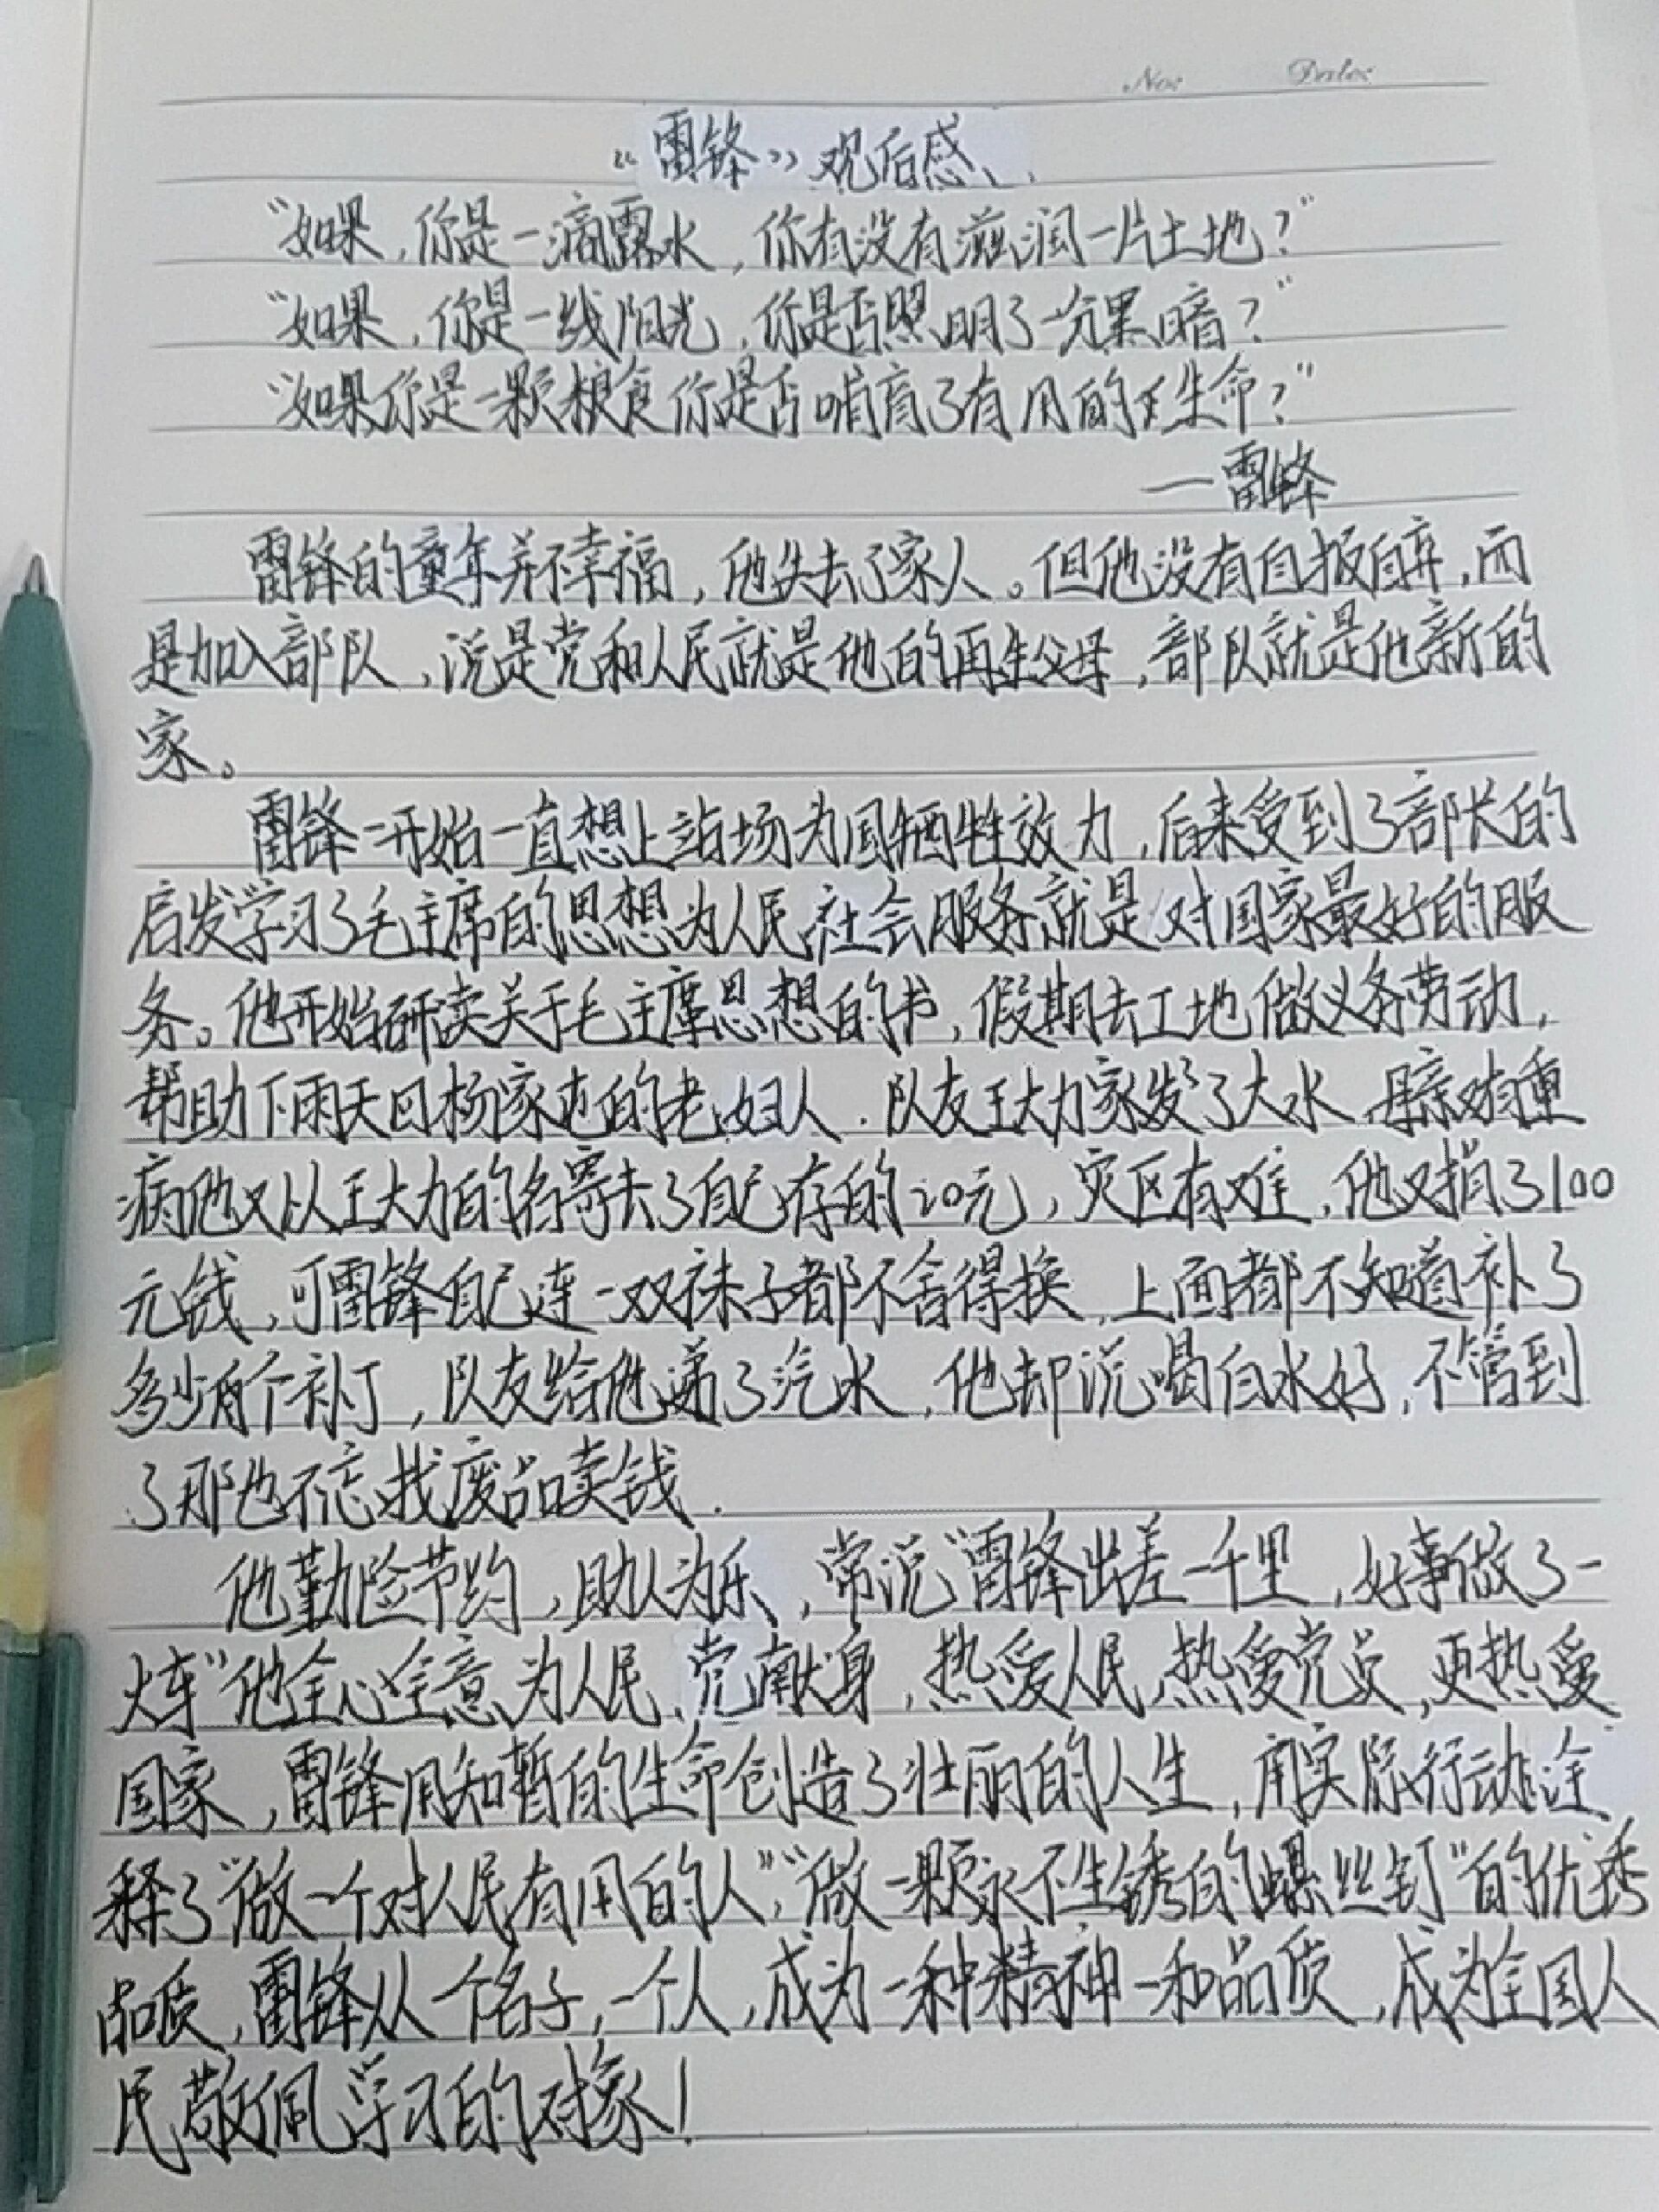 No: Date:
“雷锋”观后感、
“如果,你是一滴露水,你有没有滋润一片土地?”
“如果,你是一线阳光,你是否照明了一分黑暗?”
“如果你是一颗粮食你是否哺育了有用的生命?”
—雷锋
雷锋的童年并不幸福,他失去了家人。但他没有自报自弃,而
是加入部队,说是党和人民就是他的再生父母,部队就是他新的
家。
雷锋一开始一直想上站场为国牺牲效力,后来受到了部长的
启发学习了毛主席的思想为人民,社会服务就是对国家最好的服
务。他开始研读关于毛主席思想的书,假期去工地做义务劳动,
帮助下雨天回杨家屯的老妇人.队友王大力家发了大水,母亲又重
病他又以王大力的名寄去了自己存的20元,灾区有难,他又捐了100
元钱,可雷锋自己连一双袜子都不舍得换,上面都不知道补了
多少个补丁,队友给他递了汽水,他却说喝白水好,不管到
了那也不忘找废品卖钱.
他勤险节约,助人为乐、,常说“雷锋出差一千里,好事做了一
火车”他全心全意为人民、党献身,热爱人民,热爱党员,更热爱
国家,雷锋用知暂的生命创造了壮丽的人生,用实际行动诠
释了“做一个对人民有用的人”,“做一颗永不生锈的螺丝钉”的优秀
品质,雷锋从一个名子,一个人,成为一种精神一和品质,成为全国人
民敬佩学习的对象!